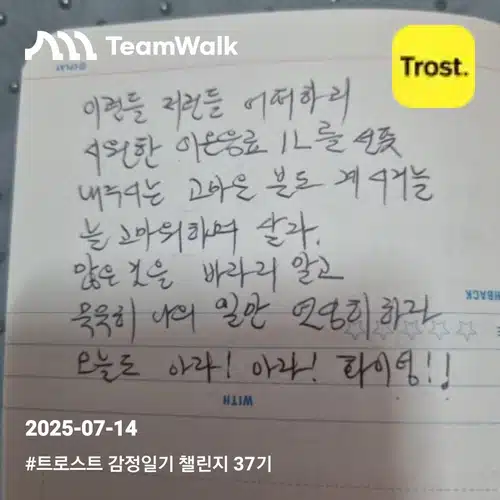 TeamWalk
Trost.
이런들 저런들 어떠하리
시원한 이온음료 1L를 선뜻
내주시는 고마운 분도 계시거늘
늘 고마워하며 살라.
많은 것을 바라리 말고
묵묵히 나의 일만 연영히하라
오늘도 아라! 아라! 화이팅!!
WITH
2025-07-14
#트로스트 감정일기 챌린지 37기